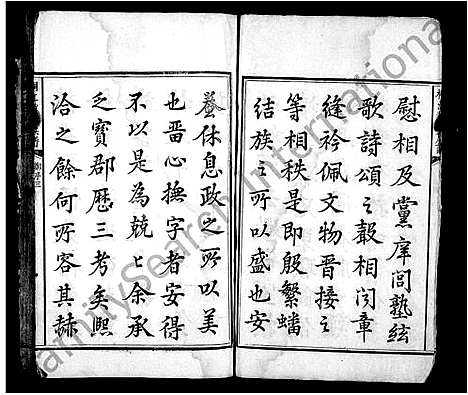 慰相及黨庠閭塾絃
歌詩頌之聲相聞章
縫衿佩文物晋接之
等相秩是即殷繁蟠
結族之所以盛也安
養休息政之所以美
也晋心撫字者安得
不以是為兢〻余承
乏寳郡歷三考矣熈
洽之餘何所容其赫
FamilySearch International